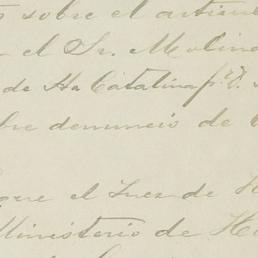 sobre el artícul
el Sr. Molina
de Sta Catalina pr. D.
bre denuncio de
que el Juez de H
Ministerio de Ha